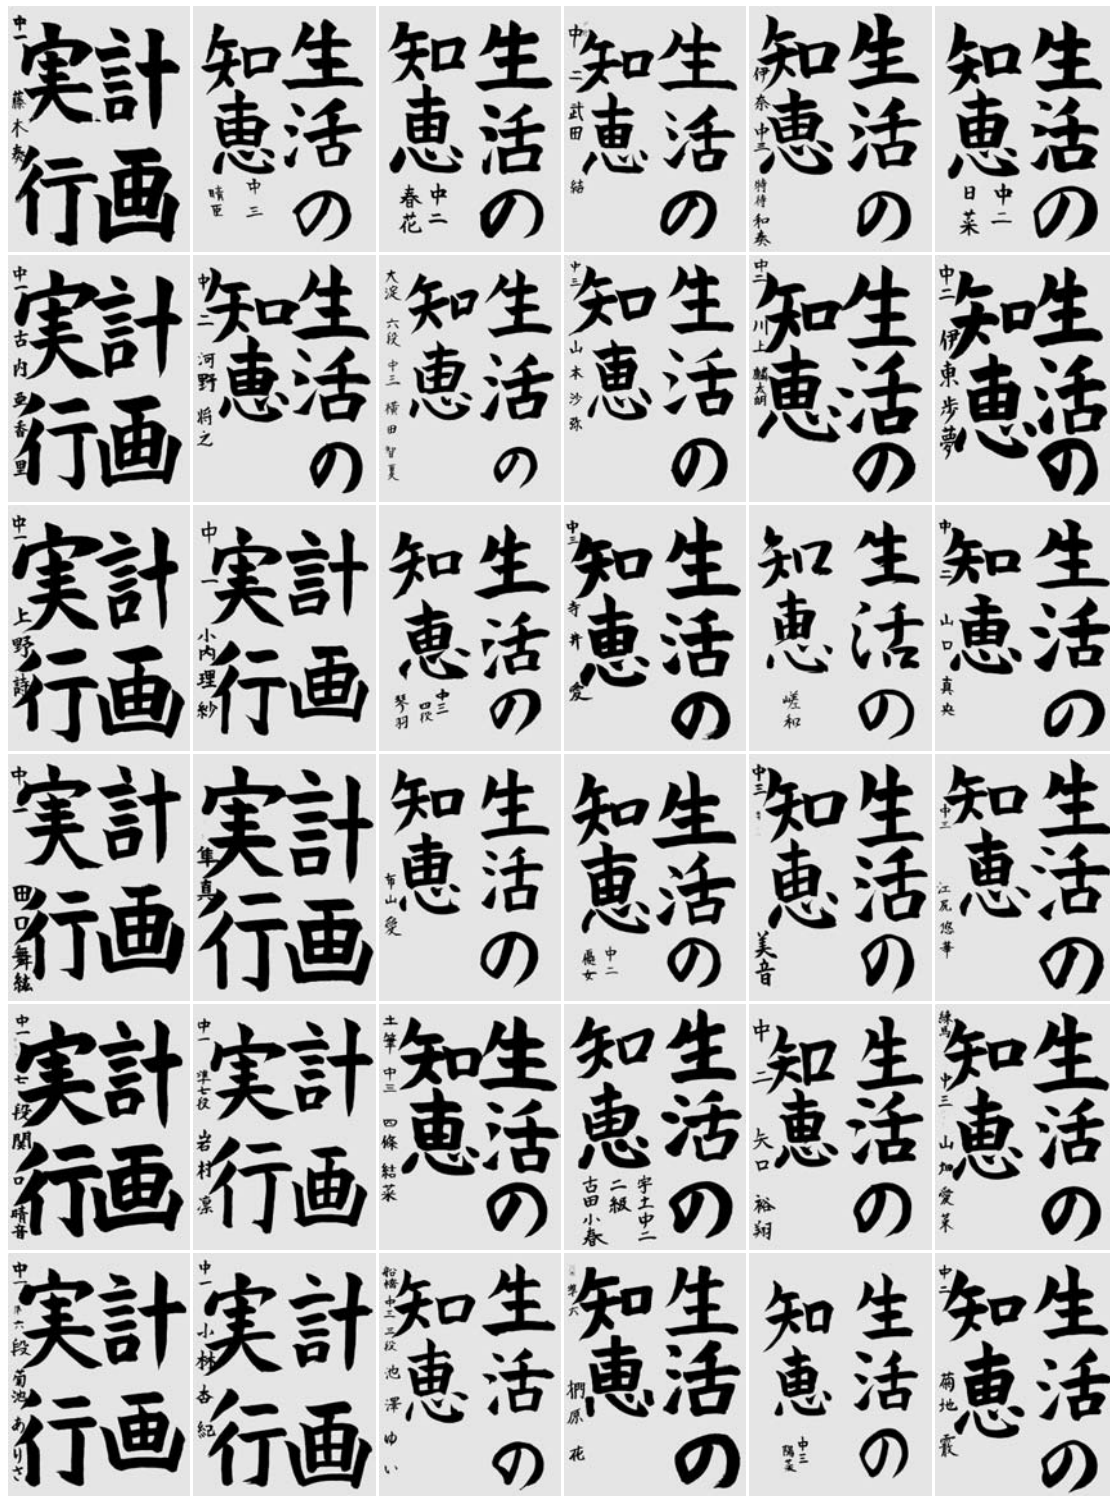 計画
実行
中一 藤木奏
生活の
知恵
中三
生活の
知恵
中二
春花
生活の
知恵
中二 武田 結
生活の
知恵
伊奈 中三 特待 和奏
生活の
知恵
中二
日菜
計画
実行
中一 古内 亜香里
生活の
知恵
中二 河野 将之
生活の
知恵
大淀 六段 中三 横田 智夏
生活の
知恵
中三 山本 沙弥
生活の
知恵
中二 川上 麟太朗
生活の
知恵
中二 伊東 歩夢
計画
実行
中一 上野 詩
計画
実行
中一 小内 理紗
生活の
知恵
中三
四段
琴羽
生活の
知恵
中三 寺井 愛
生活の
知恵
嵯和
生活の
知恵
中二 山口 真央
計画
実行
中一 田口 舞絃
計画
実行
隼真
生活の
知恵
布山 愛
生活の
知恵
中二
優女
生活の
知恵
中三 美音
生活の
知恵
中三 江尻 悠華
計画
実行
中一 七段 関口 晴音
計画
実行
中一 準七段 岩村 凛
生活の
知恵
土筆 中三 四條 結菜
生活の
知恵
宇土中二
二級
古田小春
生活の
知恵
中二 矢口 裕翔
生活の
知恵
練馬 中三 山畑 愛菜
計画
実行
中一 準六段 菊池 ありさ
計画
実行
中一 小林 杏紀
生活の
知恵
船橋 中三 三段 池澤 ゆい
生活の
知恵
準六 椚原 花
生活の
知恵
中三
陽菜
生活の
知恵
中二 菊地 霞